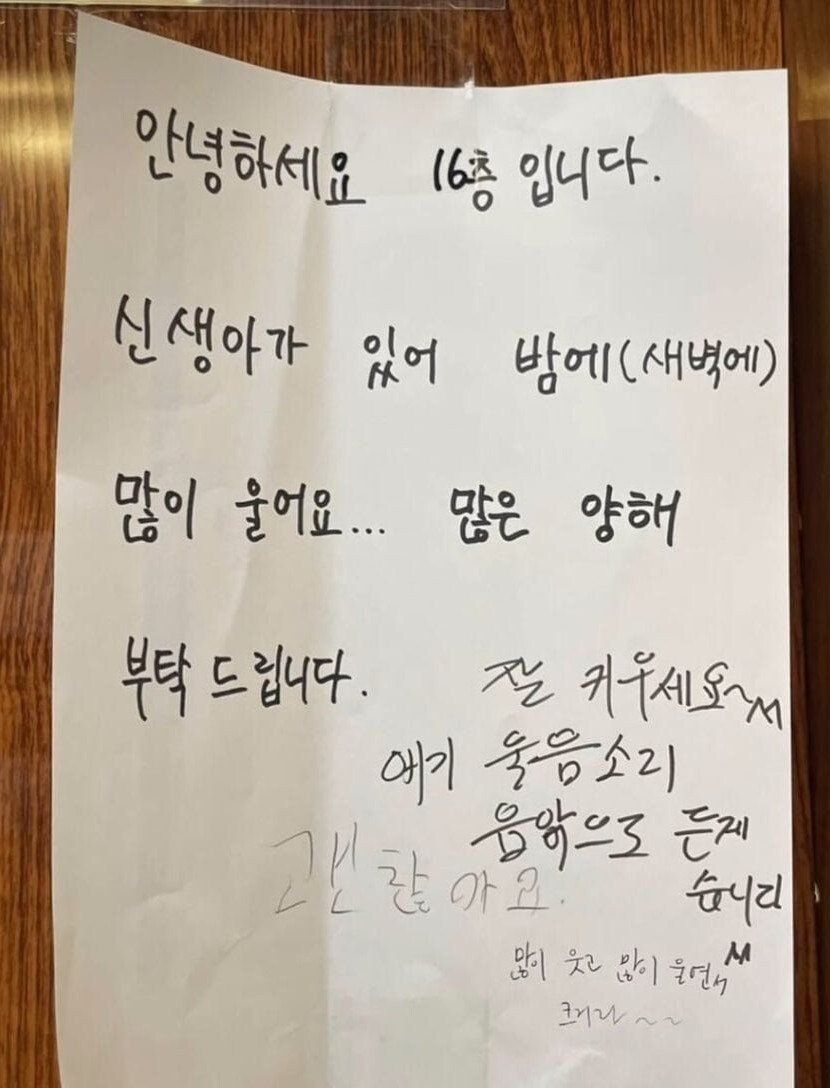 안녕하세요 16층 입니다.
신생아가 있어 밤에(새벽에)
많이 울어요... 많은 양해
부탁 드립니다.
잘 키우세요~
애기 울음소리
음악으로 듣게
습니다
괜찮아요.
많이 웃고 많이 울면서
크거라~~